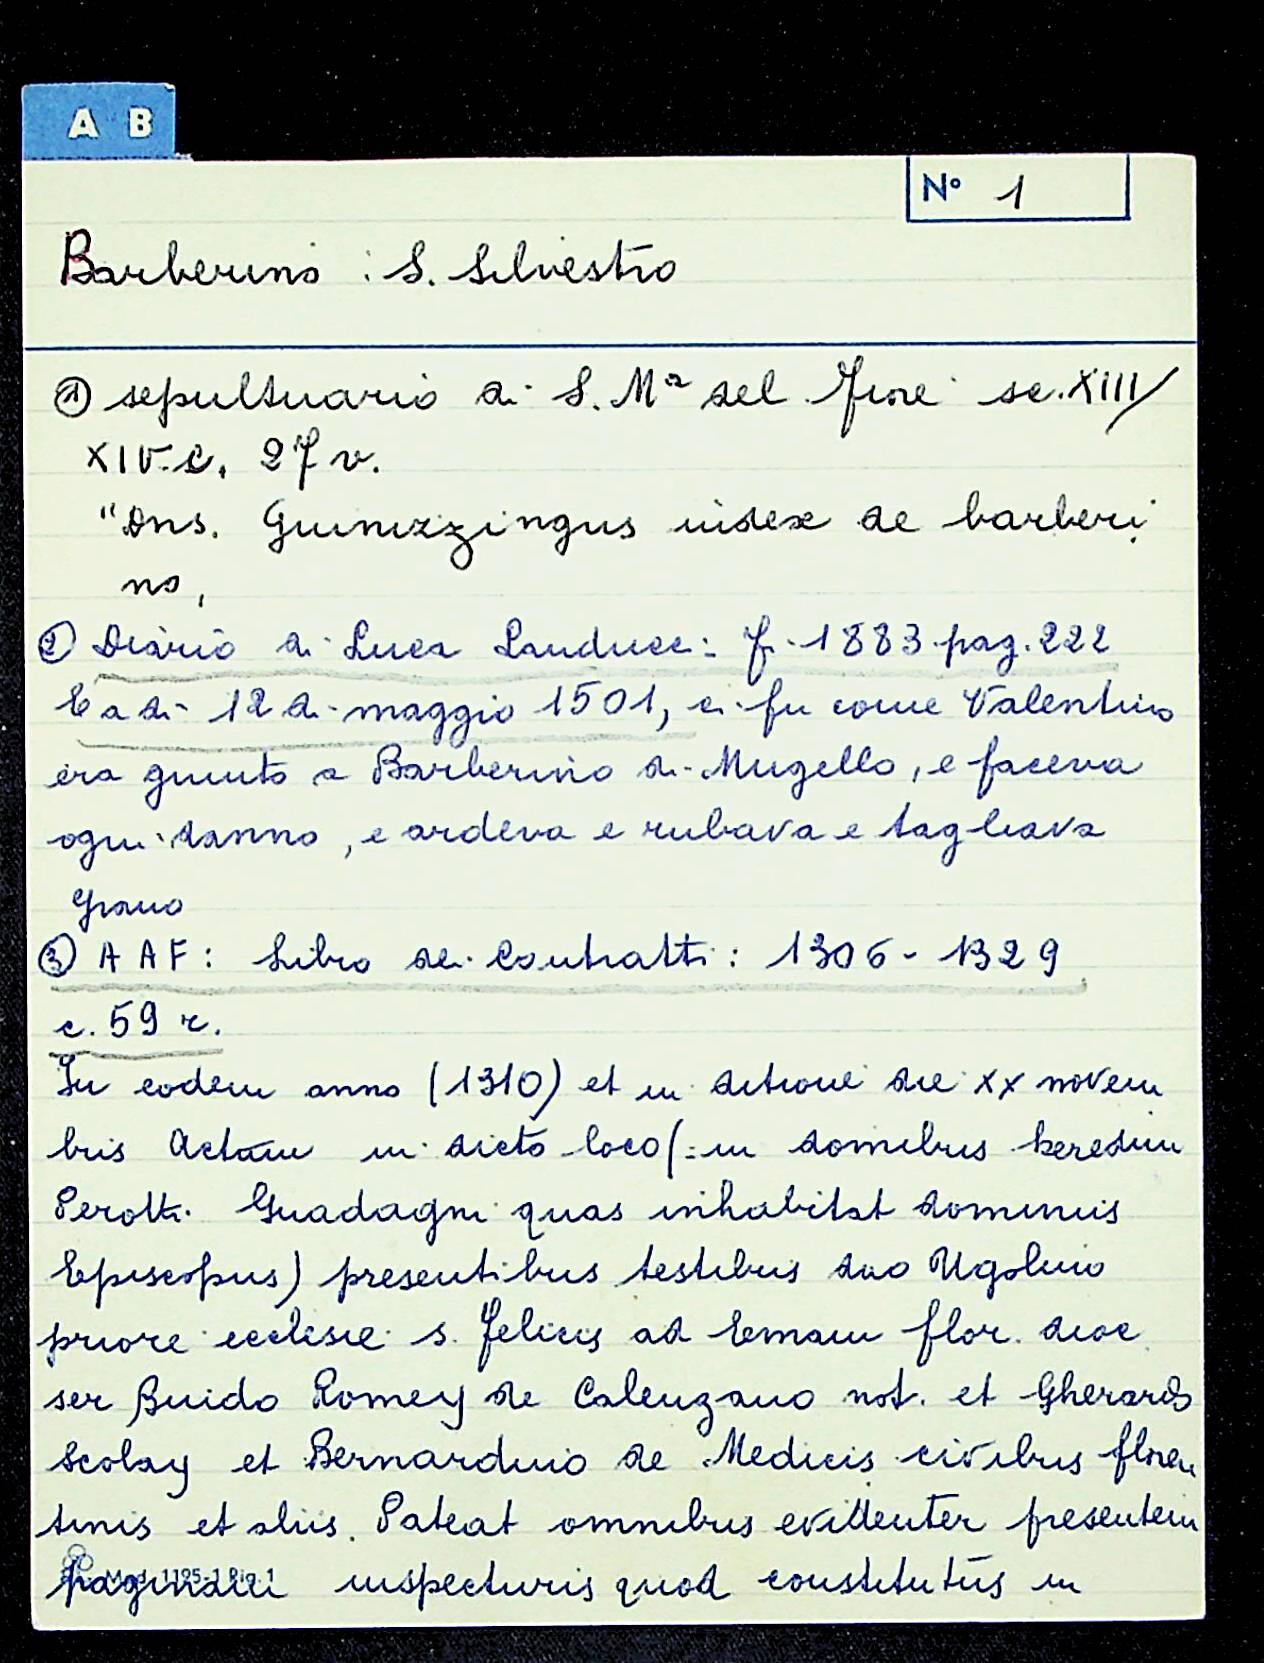 A B
N° 1
Barberino : S. Silvestro
① sepultuario di S. Mª del Fiore sec. XIII/
XIV. c. 27 v.
"Dns. Guinizzingus iudex de barberi
no,
② Diario di Luca Landucci: f. 1883 pag. 222
E a dì 12 di maggio 1501, ci fu come Valentino
era giunto a Barberino di Mugello, e faceva
ogni danno, e ardeva e rubava e tagliava
grano
③ A A F: Libro dei Contratti: 1306 - 1329
c. 59 r.
In eodem anno (1310) et in die XX novem
bris Actum in dicto loco (: in domibus heredum
Perotti Guadagni quas inhabitat dominus
Episcopus) presentibus testibus dno Ugolino
priore ecclesie s. Felicis ad Emam flor. dioc
ser Buido Romey de Calenzano not. et Gherardo
Scolay et Bernarduio de Medicis civibus floren
tinis et aliis. Pateat omnibus evidenter presentem
paginam inspecturis quod constitutus in
Mod. 1195-1 Rig. 1